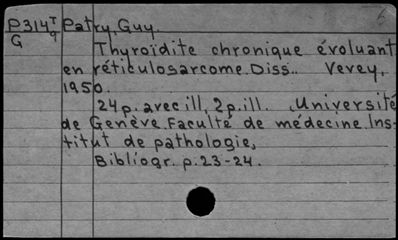 P314T Patry, Guy.
G 9
Thyroïdite chronique évoluant
en réticulosarcome. Diss.. Vevey,
1950.
24p. avec ill, 2p. ill. (Université
de Genève. Faculté de médecine. Ins-
titut de pathologie,
Bibliogr. p. 23-24.